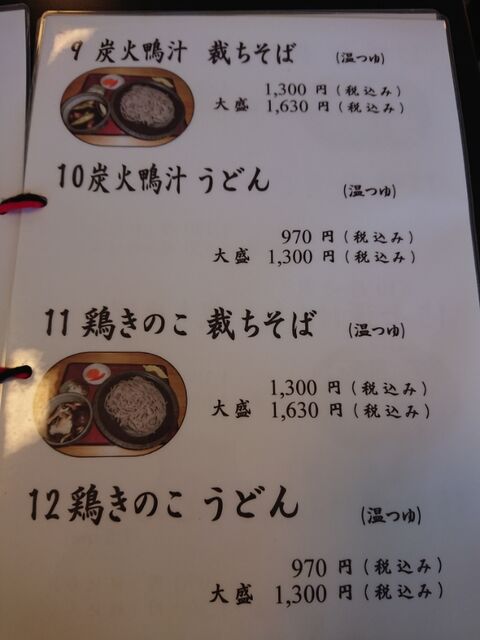 9 炭火鴨汁 裁ちそば (温つゆ)
1,300 円(税込み)
大盛 1,630 円(税込み)
10炭火鴨汁 うどん (温つゆ)
970 円(税込み)
大盛 1,300 円(税込み)
11 鶏きのこ 裁ちそば (温つゆ)
1,300 円(税込み)
大盛 1,630 円(税込み)
12 鶏きのこ うどん (温つゆ)
970 円(税込み)
大盛 1,300 円(税込み)